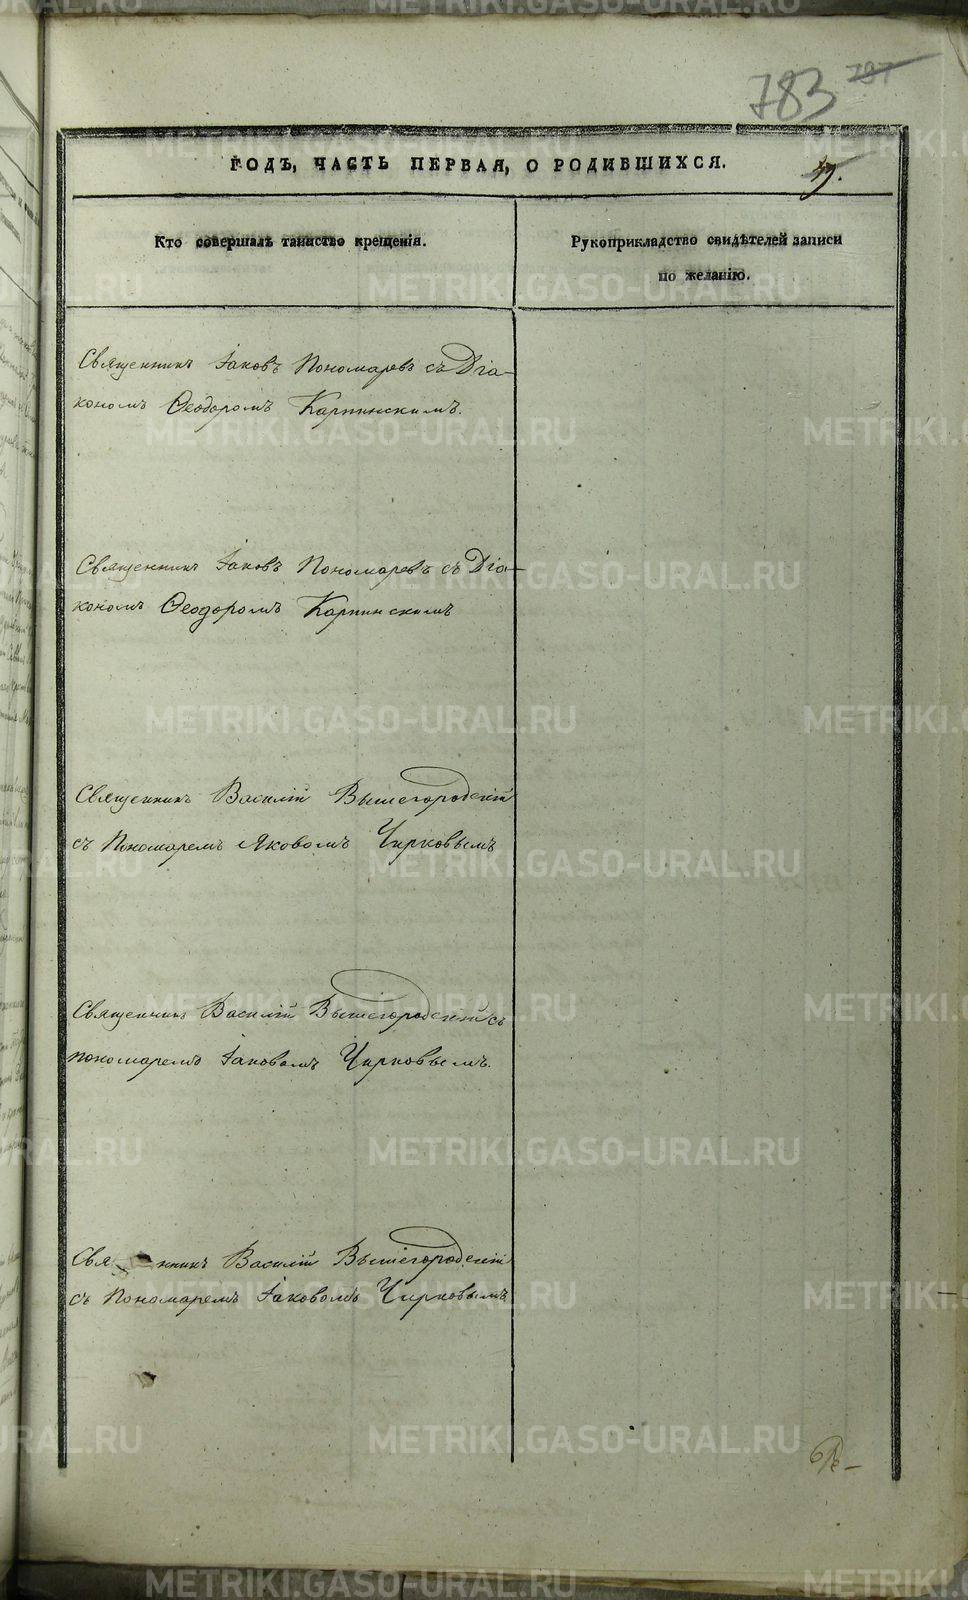 783 797
ГОДЪ, ЧАСТЬ ПЕРВАЯ, О РОДИВШИХСЯ.
Кто совершалъ таинство крещенія.
Рукоприкладство свидѣтелей записи
по желанію.
Священникъ Іаковъ Пономаревъ съ Діа-
кономъ Ѳеодоромъ Карпинскимъ.
Священникъ Іаковъ Пономаревъ съ Діа-
кономъ Ѳеодоромъ Карпинскимъ
Священникъ Василій Вышегородскій
съ Пономаремъ Яковомъ Чирковымъ
Священникъ Василій Вышегородскій съ
пономаремъ Іаковомъ Чирковымъ.
Свя нникъ Василій Вышегородскій
съ Пономаремъ Іаковомъ Чирковымъ
METRIKI.GASO-URAL.RU